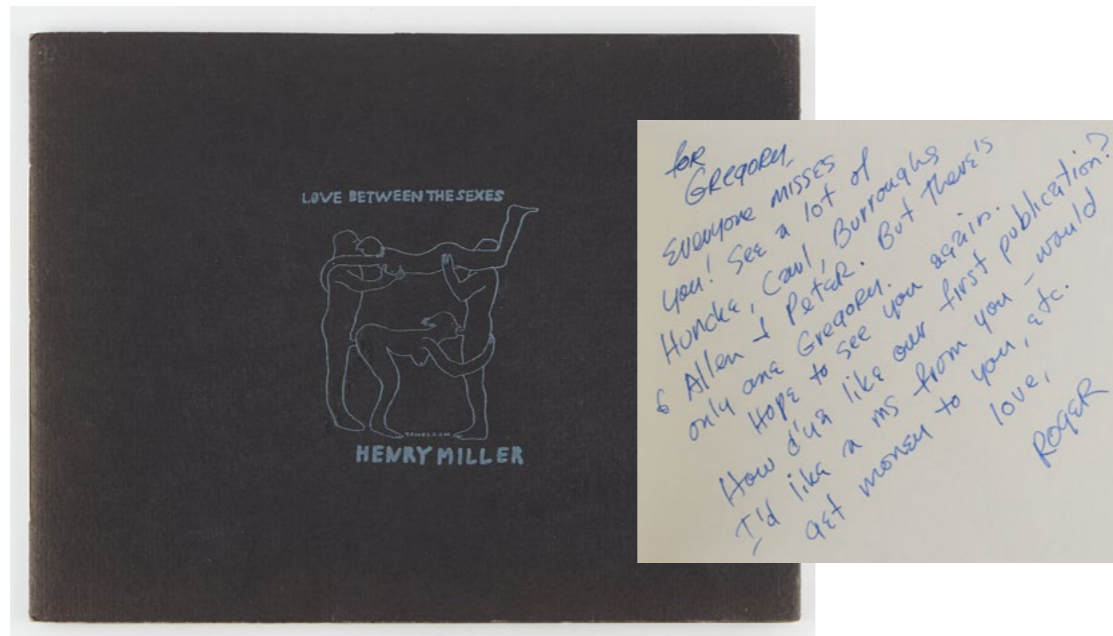 LOVE BETWEEN THE SEXES
HENRY MILLER
for
Gregory,
Everyone misses
you! See a lot of
Huncke, Carl, Burroughs
& Allen & Peter. But there's
only one Gregory.
Hope to see you again.
How d'ya like our first publication?
I'd like a ms from you – would
get money to you, etc.
love,
Roger